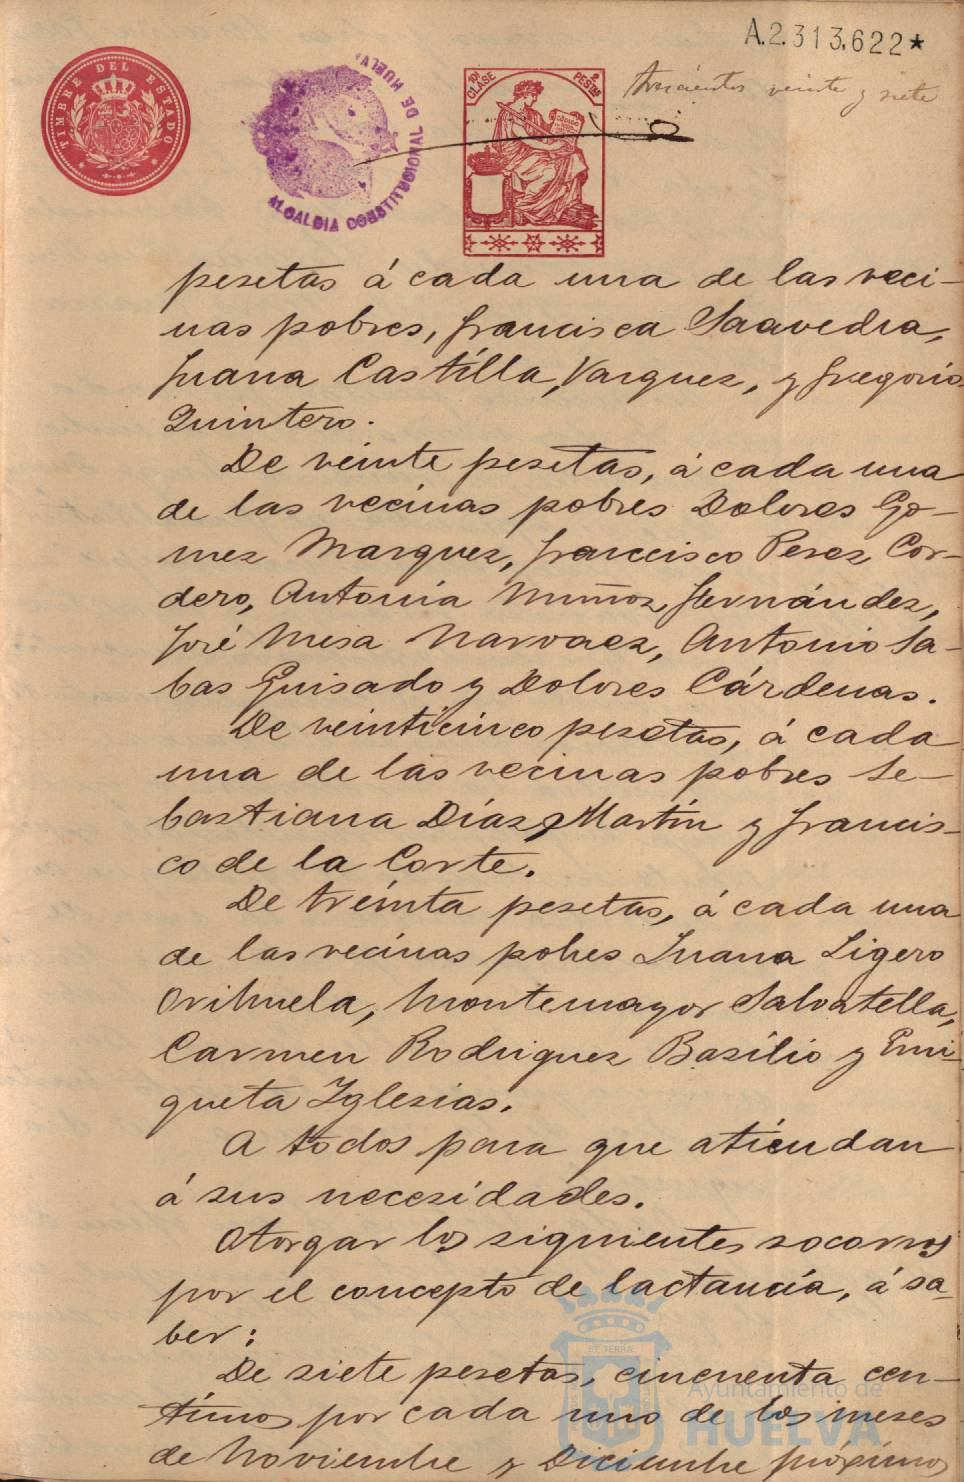 A.2.313,622★
Trescientos veinte y siete
TIMBRE DEL ESTADO
ALCALDIA CONSTITUCIONAL DE HUELVA
10ª CLASE
PESETAS
pesetas á cada una de las veci-
nas pobres, Francisca Saavedra,
Juana Castilla, Vazquez, y Gregorio
Quintero.
De veinte pesetas, á cada una
de las vecinas pobres Dolores Go-
mez Marquez, Francisco Perez Cor-
dero, Antonia Muñoz, Hernández,
José Mesa Narvaez, Antonio Sa-
bas Guisado y Dolores Cárdenas.
De veinticinco pesetas, á cada
una de las vecinas pobres Se-
bastiana Díaz, Martín y Francis-
co de la Corte.
De treinta pesetas, á cada una
de las vecinas pobres Juana Ligero
Orihuela, Montemayor Salvatella,
Carmen Rodriguez Basilio y Enri-
queta Iglesias.
A todos para que atiendan
á sus necesidades.
Otorgar los siguientes socorros
por el concepto de lactancia, á sa-
ber:
De siete pesetas, cincuenta cen-
timos por cada uno de los meses
de Noviembre y Diciembre próximos
ET TERRA
Ayuntamiento de
HUELVA